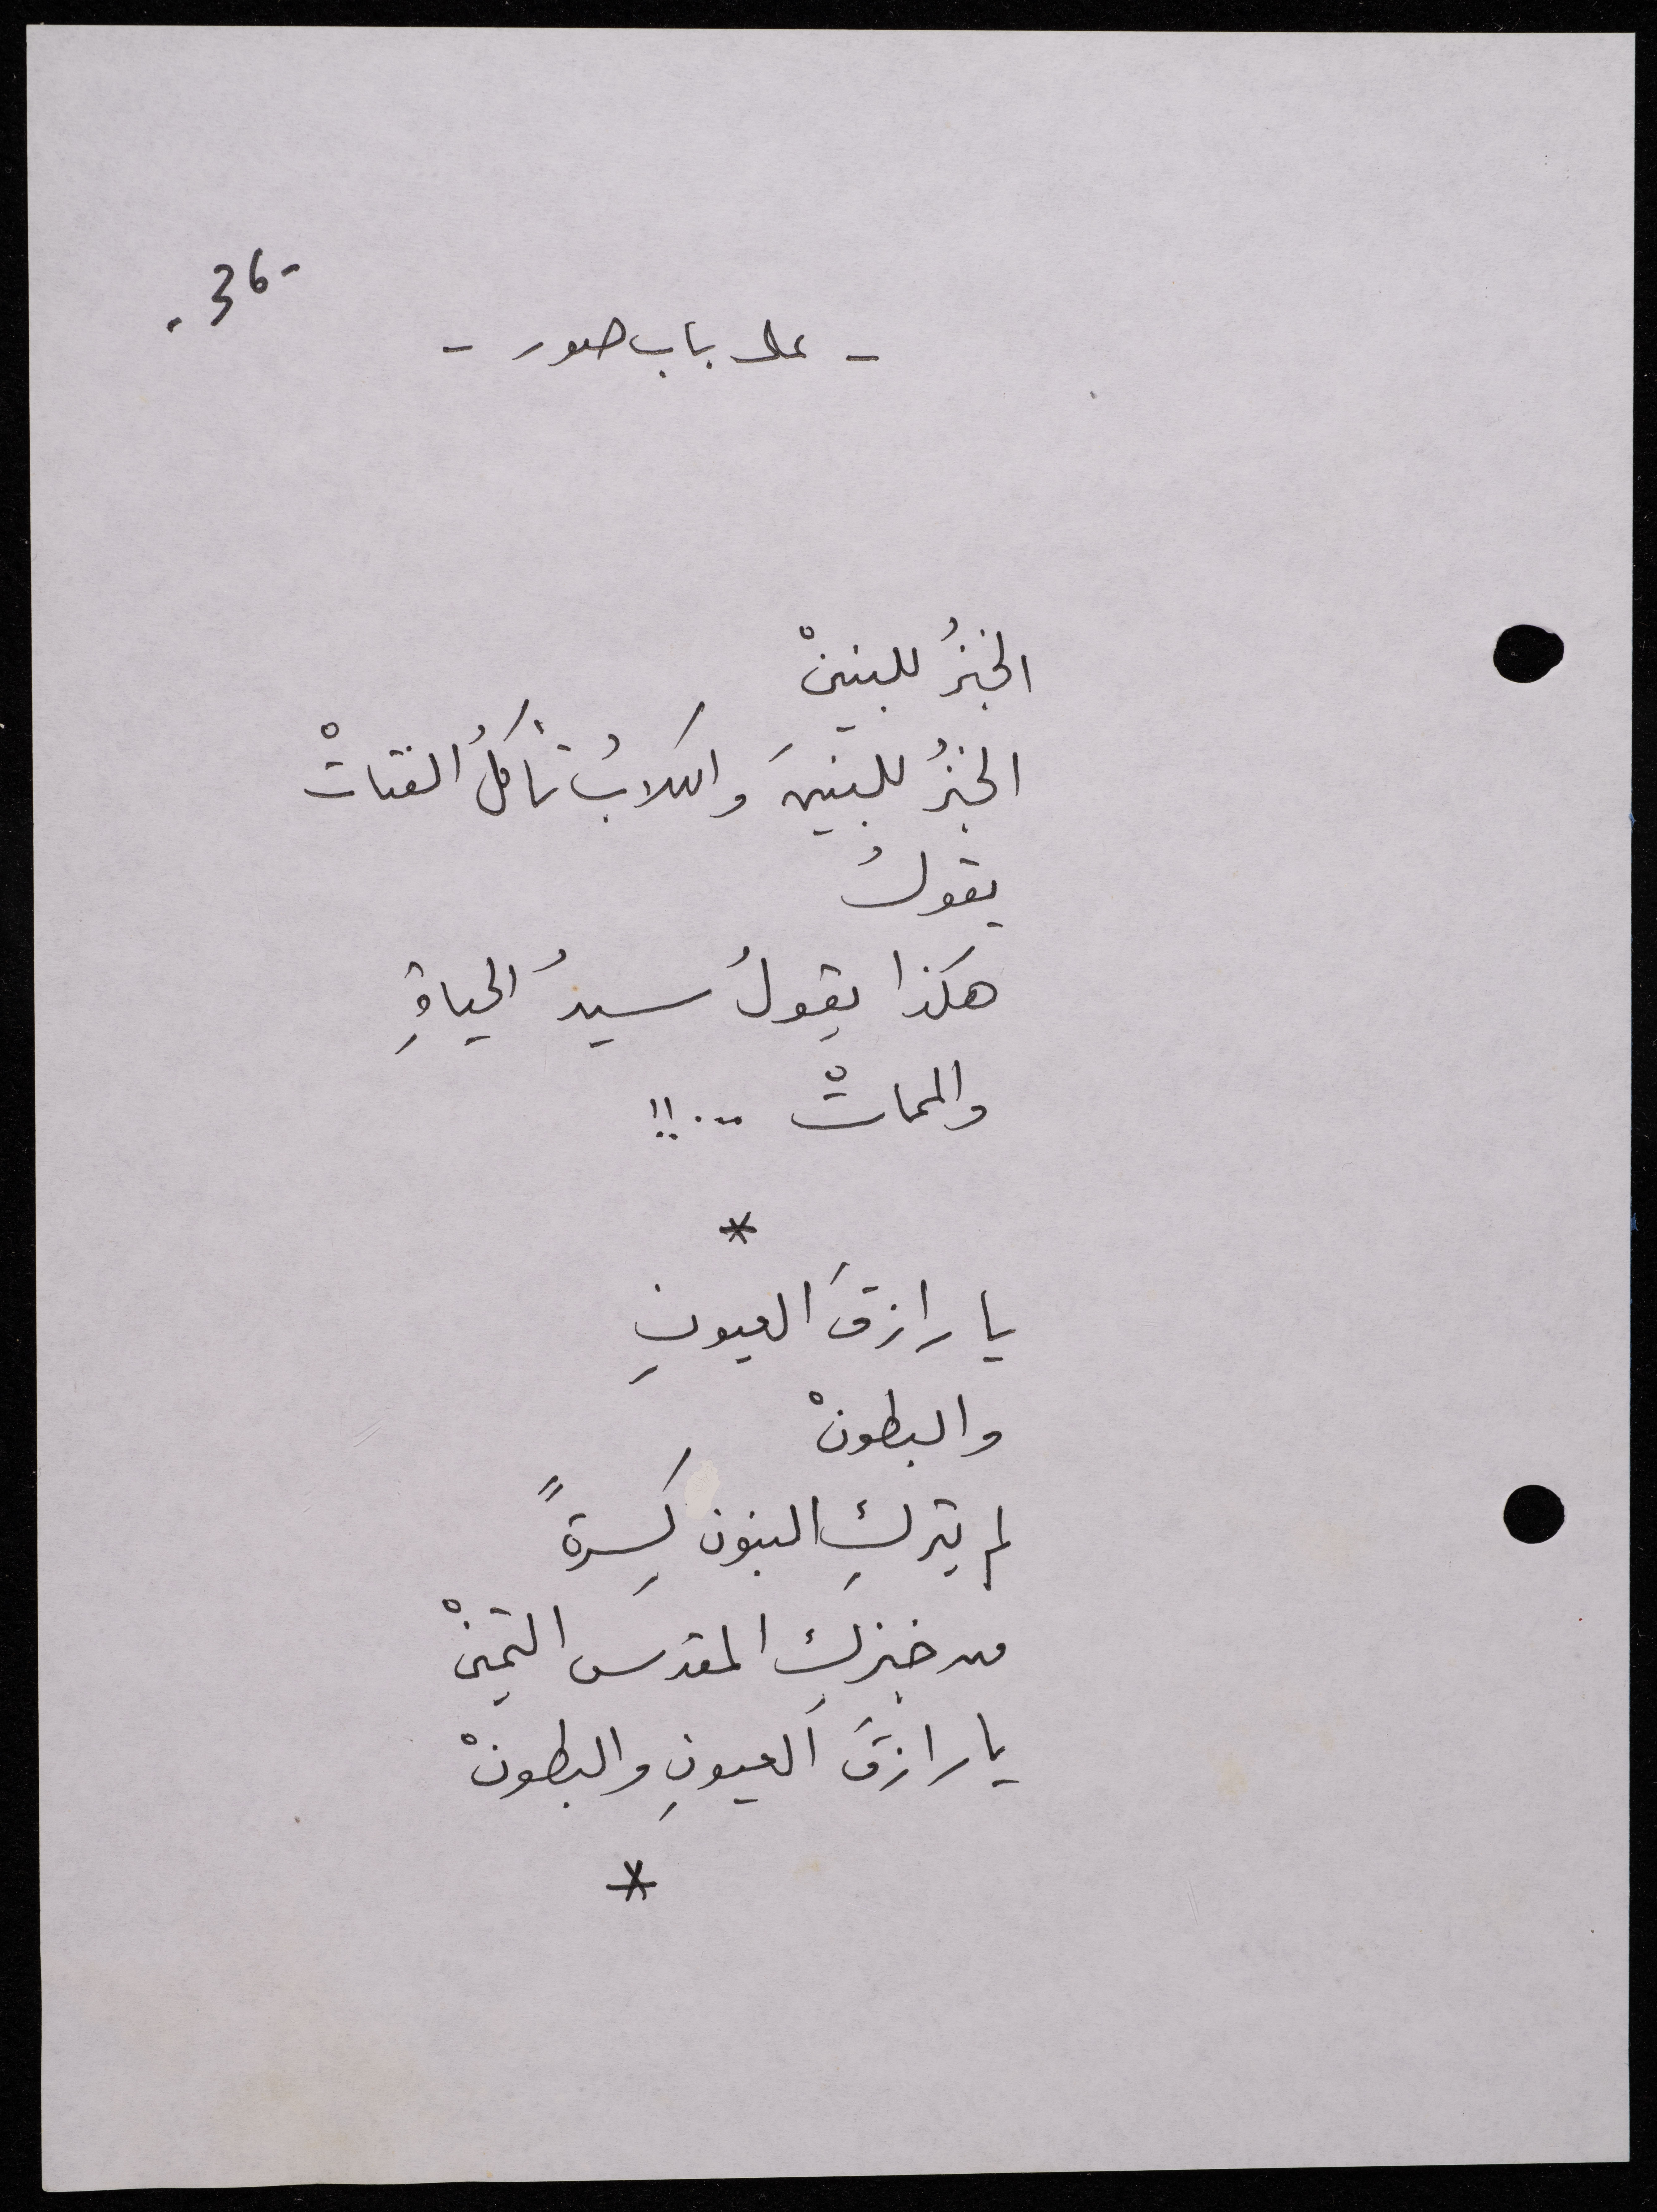 -36-
- على باب صور -
الخبزُ للبنينْ
الخبزُ للبنينَ والكلابُ تأكلُ الفتاتْ
يقولُ
هكذا يقولُ سيدُ الحياةِ
والمماتْ ...!!
*
يا رازقَ العيونِ
والبطونْ
لم يتركِ البنون كِسرةً
من خبزكَ المقدس الثمينْ
يا رازقَ العيونِ والبطونْ
*